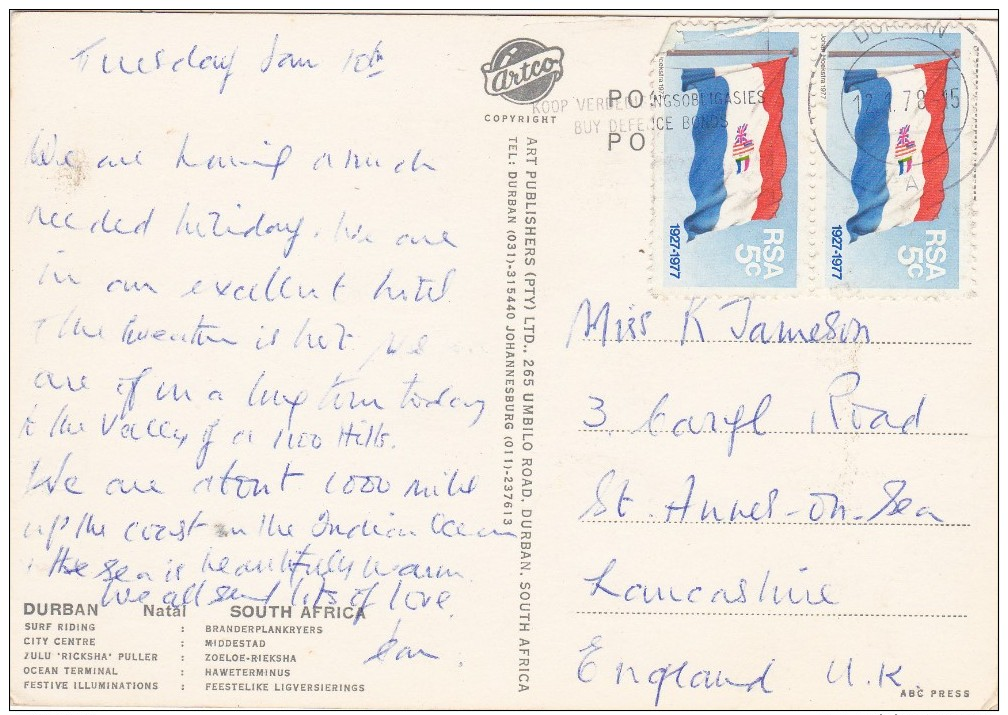 Tuesday Jan 10th
We are having a much
needed holiday. We are
in an excellent hotel
& the weather is hot. We
are off on a long tour today
to the Valley of a 1000 Hills.
We are about 1000 miles
up the coast on the Indian Ocean
& the sea is beautifully warm.
We all send lots of love.
DURBAN Natal SOUTH AFRICA
SURF RIDING : BRANDERPLANKRYERS
CITY CENTRE : MIDDESTAD
ZULU 'RICKSHA' PULLER : ZOELOE-RIEKSHA
OCEAN TERMINAL : HAWETERMINUS
FESTIVE ILLUMINATIONS : FEESTELIKE LIGVERSIERINGS
Artco
COPYRIGHT
ART PUBLISHERS (PTY) LTD., 265 UMBILO ROAD, DURBAN. SOUTH AFRICA
TEL: DURBAN (031)-315440 JOHANNESBURG (011)-237613
PO
KOOP VERDEDIGINGSOBLIGASIES
BUY DEFENCE BONDS
PO
DURBAN
A
1927-1977
RSA
5c
1927-1977
RSA
5c
Miss K Jameson
3, Caryl Road
St. Annes-on-Sea
Lancashire
England U.K.
ABC PRESS